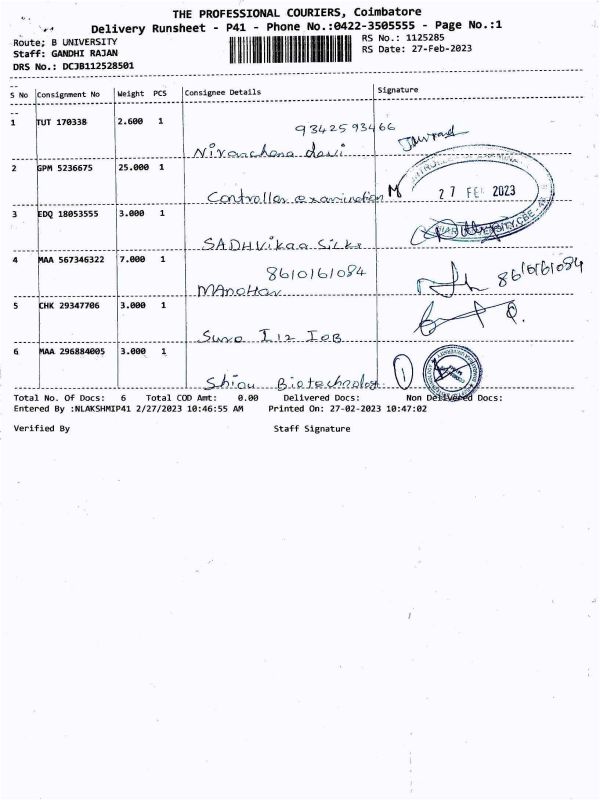 THE PROFESSIONAL COURIERS, Coimbatore
Delivery Runsheet - P41 - Phone No.:0422-3505555 - Page No.:1
Route; B UNIVERSITY RS No.: 1125285
Staff: GANDHI RAJAN RS Date: 27-Feb-2023
DRS No.: DCJB112528501
S No Consignment No Weight PCS Consignee Details Signature
1 TUT 170338 2.600 1 9342593466
Niranchana davi
2 GPM 5236675 25.000 1
27 FEB 2023
Controller examination
3 EDQ 18053555 3.000 1
SADHVikaa Silks
4 MAA 567346322 7.000 1 8610161084 8610161084
MAnohar
5 CHK 29347706 3.000 1
6 MAA 296884005 3.000 1
1
Biotechnology
Total No. Of Docs: 6 Total COD Amt: 0.00 Delivered Docs: Non Delivered Docs:
Entered By :NLAKSHMIP41 2/27/2023 10:46:55 AM Printed On: 27-02-2023 10:47:02
Verified By Staff Signature